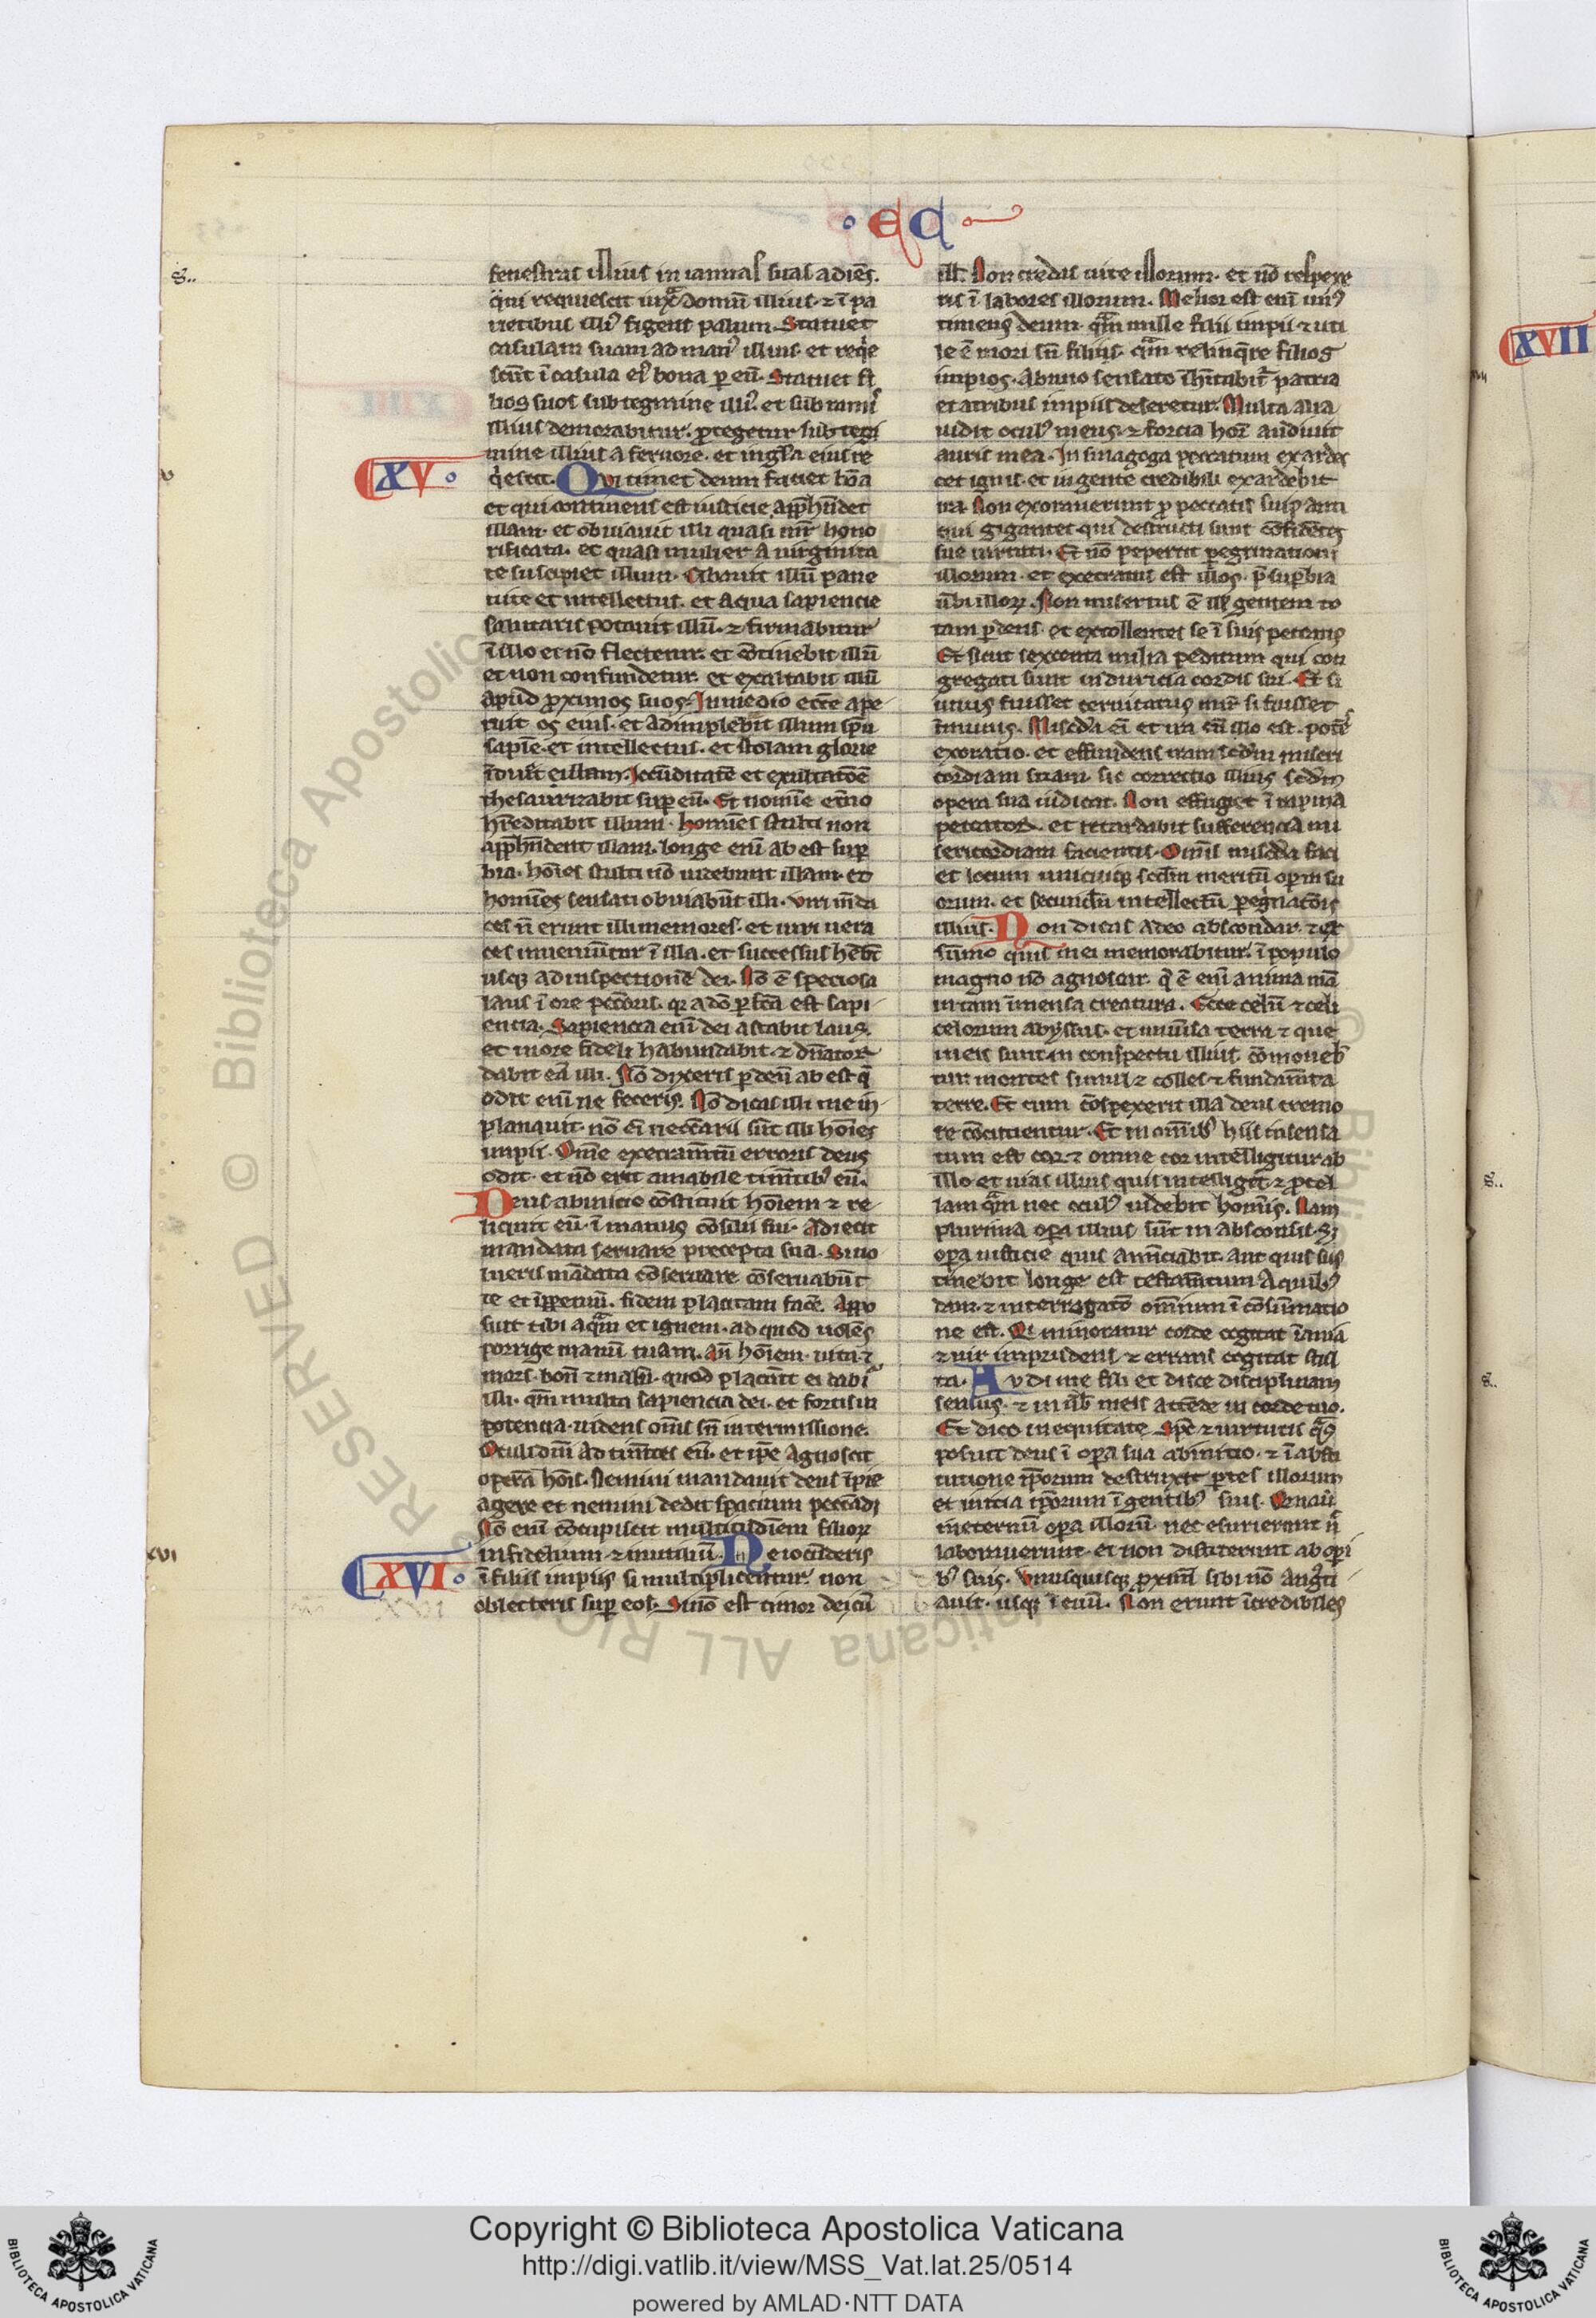 · EC
fenestras illius in ianuas suas adiēs.
q̄i requiescit iuxͣ domū illius· ⁊ ī pa
rietibus illiꝰ figens palum. Statuet
casulam suam ad manꝰ illius· et reqͥe
scēt ī casula eiꝰ bona ꝑ eū. Statuet fi
lios suos sub tegmine illiꝰ. et sub ramiˢ
illius demorabitur. ꝓtegetur sub tegi
mine illius a feruore. et in gͣla eius re
XV ·
qͥescet. Qui timet deum faciet bōa
et qui continens est iusticie app̄hēdet
illam· et obuiauit illi quasi mr̄ hono
rificata. et quasi mulier a uirginita
te suscipiet illum. Cibauit illū pane
uite et intellectus. et aqua sapiencie
salutaris potauit illū. ⁊ firmabitur
ī illo et nō flectetur. et ꝯtinebit illū
et non confundetur. et exaltabit illū
apud ꝓximos suos. In medio ecc̄e ape
ruit os eius. et adimplebit illum sp̄u
sapiē. et intellectus. et stolam glorie
īduet eillam. Iocūditatē et exultatōē
thesaurizabit suꝑ eū. Et nomīe et̄no
hr̄editabit illum. homines stulti non
app̄hēdent illam. longe enī ab est suꝑ
bia. hoīes stulti nō uidebunt illam. et
homines sensati obuiabūt illi. uiri mēda
ces nō erunt illi memores. et uiri uera
ces inueniūtur ī illa. et successus hēbūt
usqꝫ ad inspectionē dei. Nō ē speciosa
laus ī ore pecc̄oris. qr̄ a dō ꝑfc̄a est sapi
encia. Sapiencia enī dei astabit laus.
et in ore fideli habundabit· ⁊ dn̄ator
dabit eā illi. Nō dixeris ꝑ deū ab est qͥ
odit enī ne feceris. Nō dicas illi me in
planauit. nō eī neccarii sūt illi hoīes
impii. Omē execram̄tū erroris deus
odit. et nō erit amabile timētibꝰ eū.
Deus ab inicio ꝯstituit hoīem ⁊ re
liquit eū ī manus ꝯsilii sui. Adiecit
mandata seruare precepta sua. Si uo
lueris mādata ꝯseruare ꝯseruabūt
te et īꝑpetuū. fidem placitam facē. Appo
suit tibi aqͣm et ignem. ad quod uolēs
porrige manū tuam. an̄ hoīem· uita ⁊
mors. bonū ⁊ malū· quod placūit ei dabiͭ
illi. qm̄ multa sapiencia dei. et fortis in
potencia. uidens om̄s sn̄ intermissione.
Oculi dn̄i ad timētes eū. et ip̄e agnoscit
operā hoīs. Nemini mandauit deus īpie
agere et nemini dedit spacium peccādi
Nō enī ꝯcupiscit multitudīem filioꝝ
infidelium ⁊ inutiliū. Ne iocūderis
XVI ·
ī filiis impiis si multiplicentur. non
oblecteris suꝑ eos. Si nō est timor dei cū
ill̄. Non credas uite illorum. et nō respexe
ris ī labores illorum. Melior est enī unꝰ
timens deum. qͣm mille filii impii ⁊ uti
le ē mori sn̄ filiis. qͣm relinqͤre filios
impios. Ab uno sensato īhītabit̄ patria
et a tribus impiis deseretur. Multa alia
uidit oculꝰ meus. ⁊ forcia hoꝝ audiuit
auris mea. In sinagoga peccatum exardes
cet ignis. et in gente credibili exardebit
ira. Non exorauerunt ꝓ peccatis suis anti
qui gigantes qui destructi sunt ꝯfidētes
sue uirtuti. Et nō pepercit ꝑegrinationi
illorum. et execratus est illos. p̄ suꝑbia
ūbi illoꝝ. Non misertus ē ill̄ gentem to
tam ꝑdens. et extollentes se ī suis peccatis
Et sicut sexcenta milia peditum qui con
gregati sunt in duricia cordis sui. Et si
unus fuisset ceruicatus mir̄ si fuisset
īmunis. Mis̄cdia eī et ira cū illo est. potēˢ
exoratio. et effundens iram sc̄dm miseri
cordiam suam. sic correctio illius sc̄dm
opera sua iudicat. Non effugiet ī rapina
peccator. et retardabit sufferencia mi
sericordiam facientis. Om̄is mis̄cdia faci
et locum unicuiqꝫ sc̄dm meritū oꝑum su
orum. et secundū intellectū ꝑegͥnatōis
illius. Non dicas a deo abscondar. ⁊ ex
sūmo quis mei memorabitur. ī populo
magno nō agnoscar. qͤ ē enī anima mā
in tam īmensa creatura. Ecce celū ⁊ celi
celorum abyssus. et uniūsa terra ⁊ que
in eis sunt in conspectu illius ꝯmouebū
tur montes simul ⁊ colles ⁊ fundam̄ta
terre. Et cum ꝯspexerit illa deus tremo
re ꝯcucientur. Et in omībꝰ hiis insensa
tum est cor ⁊ omne cor intelligitur ab
illo et uias illius quis intelligit ⁊ ꝓcel
lam qͣm nec oculꝰ uidebit homīs. Nam
plurima oꝑa illius sūt in absconsis. Sꝫ
oꝑa iusticie quis anūciabit. aut quis sus
tinebit longe est testam̄tum a quibꝰ
dam. ⁊ interrogatō omnium ī ꝯsūmatio
ne est. Qui minoratur corde cogitat īania
⁊ uir imprudens ⁊ errans cogitat stul
ta. Audi me fili et disce disciplinam
sensus. ⁊ in ūbis meis attēde in corde tuo.
Et dico in equitate spē ⁊ uirtutis qͣs
posuit deus ī oꝑa sua ab inicio. ⁊ ī absti
tutione ip̄orum destruxit ꝑtes illorum
et inicia ip̄orum ī gentibꝰ suis. Ornauit
in eternū oꝑa illorū. nec esurierunt n̄
laborauerunt. et non distiterunt ab oꝑi
bꝰ suis. Vnusquisqꝫ ꝓximū sibi nō angͥsti
auit. usqꝫ ī euū. Non erunt īcredibiles
XVII
Copyright © Biblioteca Apostolica Vaticana
http://digi.vatlib.it/view/MSS_Vat.lat.25/0514
powered by AMLAD·NTT DATA
BIBLIOTECA APOSTOLICA VATICANA
BIBLIOTECA APOSTOLICA VATICANA